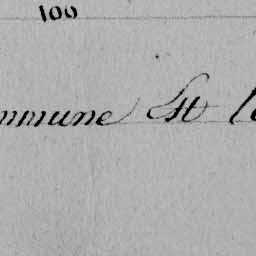 100
mmune Est le